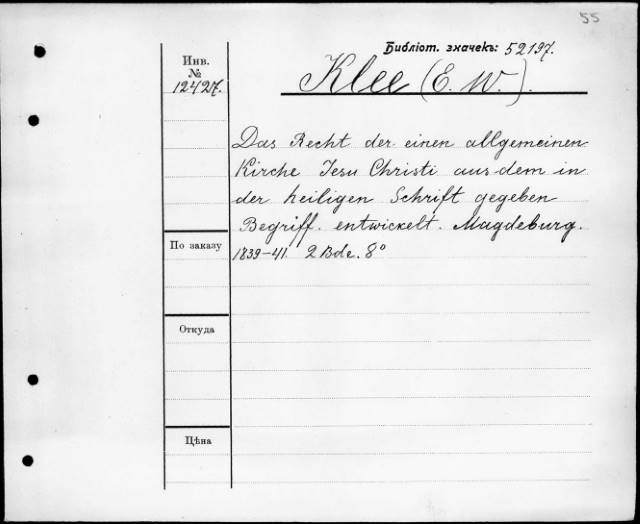 55
Библіот. значекъ: 52197.
Инв.
№
12427.
Klee (E. W.).
Das Recht der einen allgemeinen
Kirche Jesu Christi aus dem in
der heiligen Schrift gegeben
Begriff. entwickelt. Magdeburg.
По заказу
1839-41. 2 Bde. 8°
Откуда
Цѣна